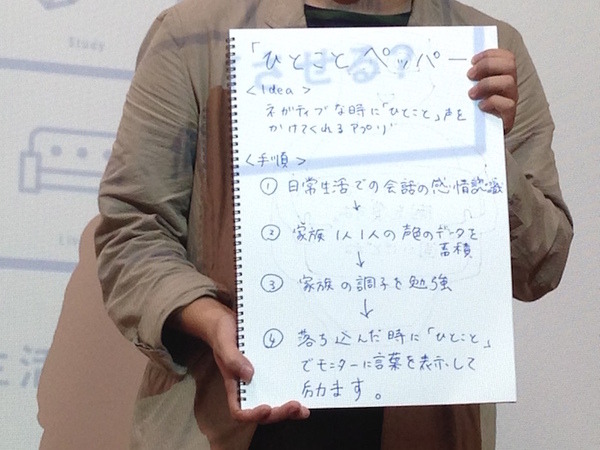 Study
させる?
「ひとこと ペッパー
<Idea>
ネガティブな時に「ひとこと」声を
かけてくれるアプリ
<手順>
① 日常生活での会話の感情認識
↓
② 家族1人1人の声色のデータを
蓄積
↓
③ 家族の調子を勉強
↓
④ 落ち込んだ時に「ひとこと」
でモニターに言葉を表示して
励ます。